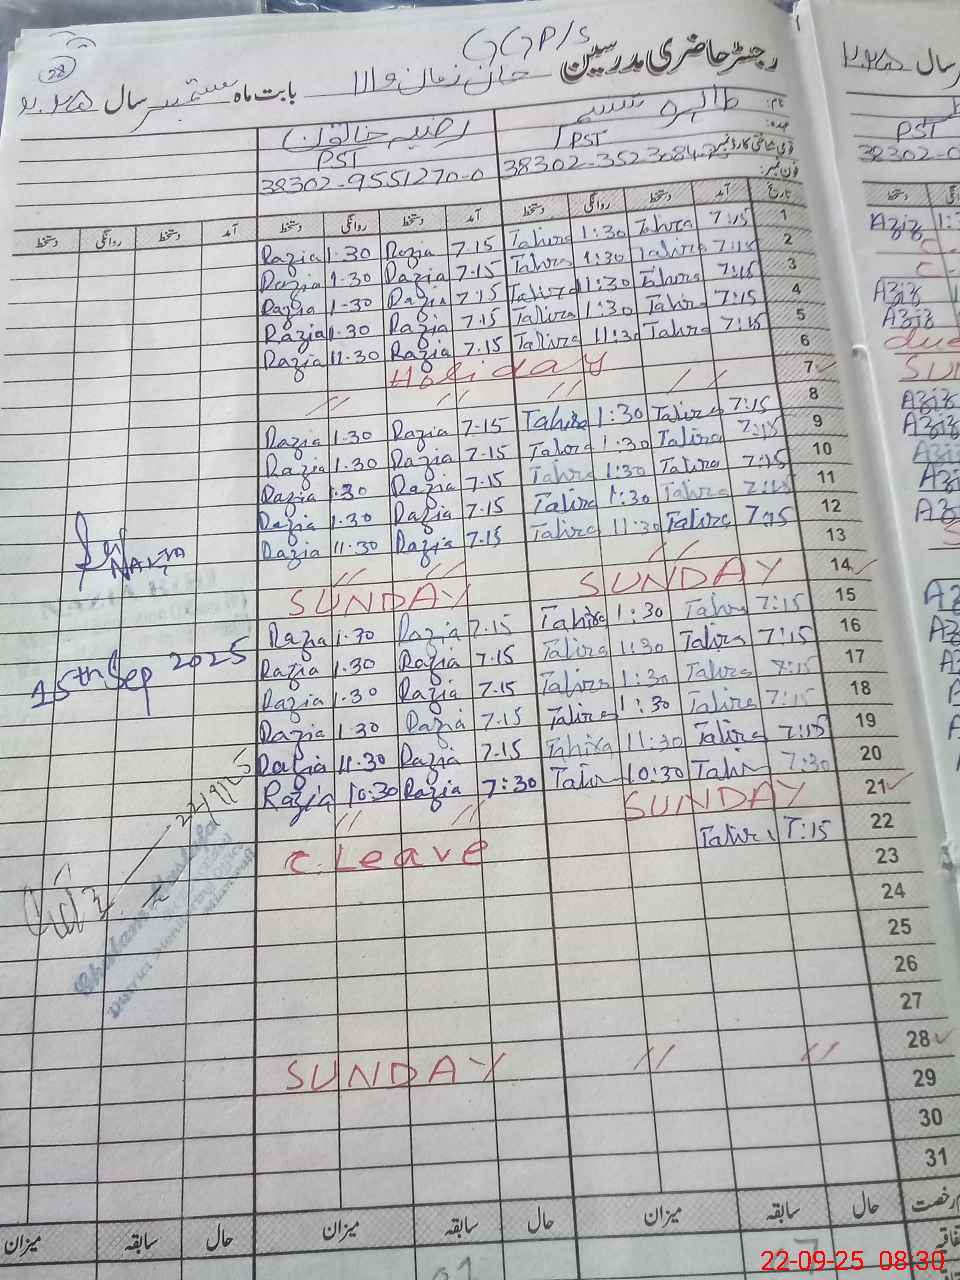 GGP/S
رجسٹر حاضری مدرسین خان زمان والا بابت ماہ ستمبر سال ۲۰۲۵
28
نام: طاہرہ تبسم رضیہ خاتون
عہدہ: PST PST
قومی شناختی کارڈ نمبر 38302-9551270-0
فون نمبر:
تاریخ آمد دستخط روانگی دستخط آمد دستخط روانگی دستخط آمد دستخط روانگی دستخط
1 7:15 Tahira 1:30 Tahira 7.15 Razia 1.30 Razia
2 7:15 Tahira 1:30 Tahira 7.15 Razia 1.30 Razia
3 7:15 Tahira 11:30 Tahira 7:15 Razia 1.30 Razia
4 7:15 Tahira 1:30 Tahira 7.15 Razia 1.30 Razia
5 7:15 Tahira 11:30 Tahira 7.15 Razia 11.30 Razia
6 Holiday
7 // // // //
8 7:15 Tahira 1:30 Tahira 7.15 Razia 1.30 Razia
9 7:15 Tahira 1:30 Tahira 7.15 Razia 1.30 Razia
10 7:15 Tahira 1:30 Tahira 7.15 Razia 1.30 Razia
11 7:15 Tahira 1:30 Tahira 7.15 Razia 1.30 Razia
12 7:15 Tahira 11:30 Tahira 7.15 Razia 11.30 Razia
13 // // //
14 SUNDAY SUNDAY
15 7:15 Tahira 1:30 Tahira 7.15 Razia 1.30 Razia
16 7:15 Tahira 1:30 Tahira 7.15 Razia 1.30 Razia
17 7:15 Tahira 1:30 Tahira 7.15 Razia 1.30 Razia
18 7:15 Tahira 1:30 Tahira 7.15 Razia 1.30 Razia
19 7:15 Tahira 11:30 Tahira 7.15 Razia 11.30 Razia
20 7:30 Tahir 10:30 Tahir 7:30 Razia 10:30 Razia
21 SUNDAY // //
22 7:15 Tahira C. Leave
23
24
25
26
27
28 // // SUNDAY
29
30
31
حال سابقہ میزان حال سابقہ میزان حال سابقہ میزان
15th Sep 2025
22/9/25
سال ۲۰۲۵
PST
Aziz
Aziz
Aziz
Aziz
Aziz
22-09-25 08:30